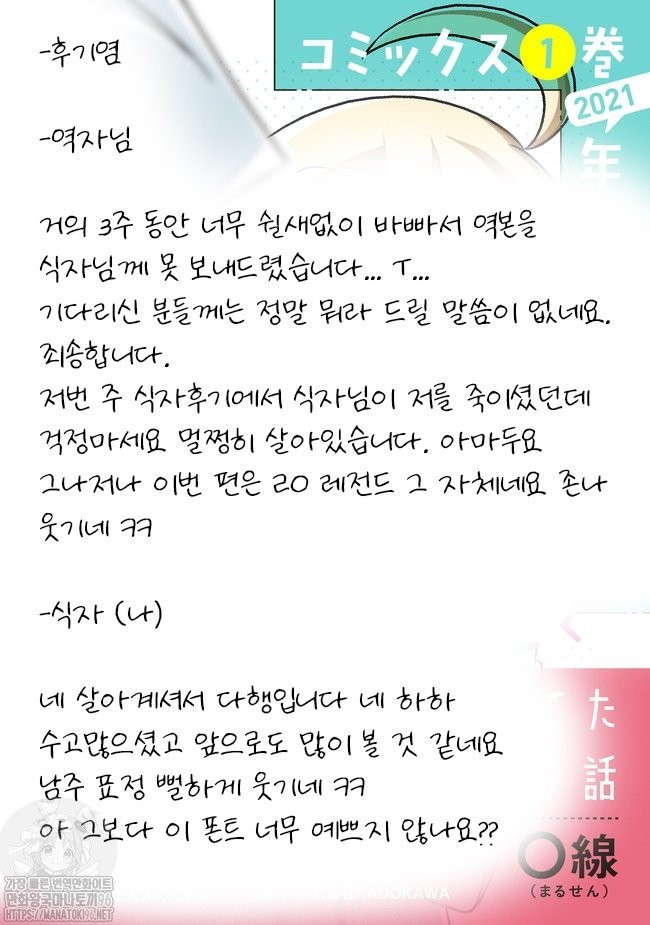 コミックス1巻
2021
年
-후기염
-역자님
거의 3주 동안 너무 쉴새없이 바빠서 역본을
식자님께 못 보내드렸습니다... T...
기다리신 분들께는 정말 뭐라 드릴 말씀이 없네요.
죄송합니다.
저번 주 식자후기에서 식자님이 저를 죽이셨던데
걱정마세요 멀쩡히 살아있습니다. 아마두요
그나저나 이번 편은 ㄹO 레전드 그 자체네요 존나
웃기네 ㅋㅋ
-식자 (나)
네 살아계셔서 다행입니다 네 하하
수고많으셨고 앞으로도 많이 볼 것 같네요
남주 표정 뻘하게 웃기네 ㅋㅋ
아 그보다 이 폰트 너무 예쁘지 않나요??
てた
話
○線
(まるせん)
KADOKAWA
가장 빠른 번역만화이트
만화왕국마나토끼96
HTTPS://MANATOKI96.NET